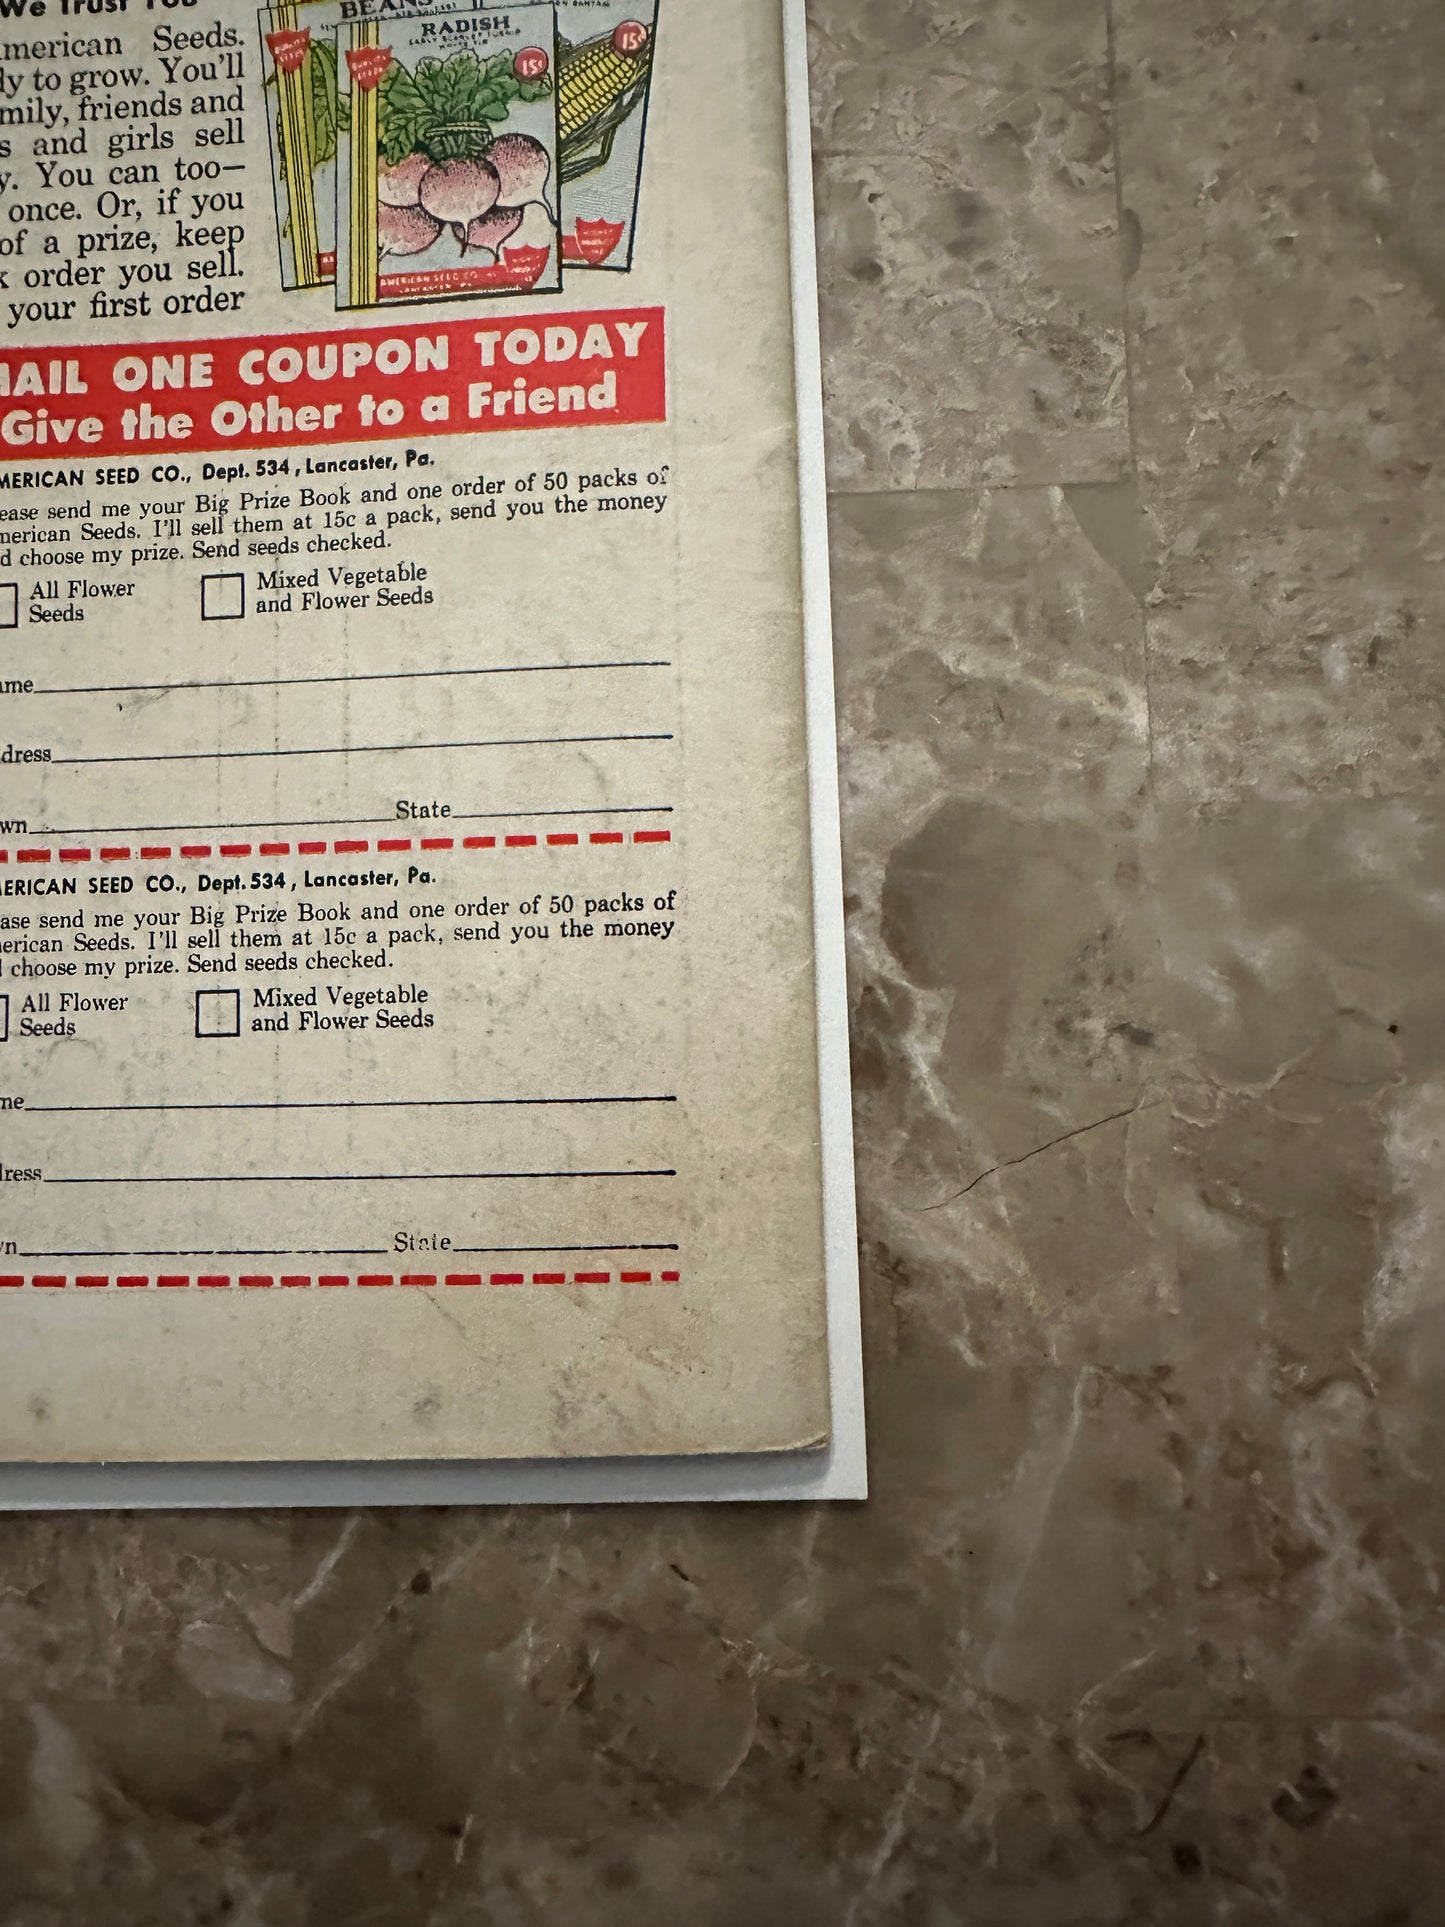 We Trust You
merican Seeds.
ly to grow. You'll
mily, friends and
s and girls sell
y. You can too—
once. Or, if you
of a prize, keep
k order you sell.
your first order
BEANS
RADISH
EARLY SCARLET TURNIP
WHITE TIP
BANTAM
15¢
15¢
QUALITY SEEDS
QUALITY SEEDS
AMERICAN SEED CO.
LANCASTER, PA.
AIL ONE COUPON TODAY
Give the Other to a Friend
MERICAN SEED CO., Dept. 534, Lancaster, Pa.
ease send me your Big Prize Book and one order of 50 packs of
merican Seeds. I'll sell them at 15c a pack, send you the money
d choose my prize. Send seeds checked.
All Flower
Seeds
Mixed Vegetable
and Flower Seeds
me
dress
wn State
ERICAN SEED CO., Dept. 534, Lancaster, Pa.
ase send me your Big Prize Book and one order of 50 packs of
erican Seeds. I'll sell them at 15c a pack, send you the money
choose my prize. Send seeds checked.
All Flower
Seeds
Mixed Vegetable
and Flower Seeds
me
ress
n State